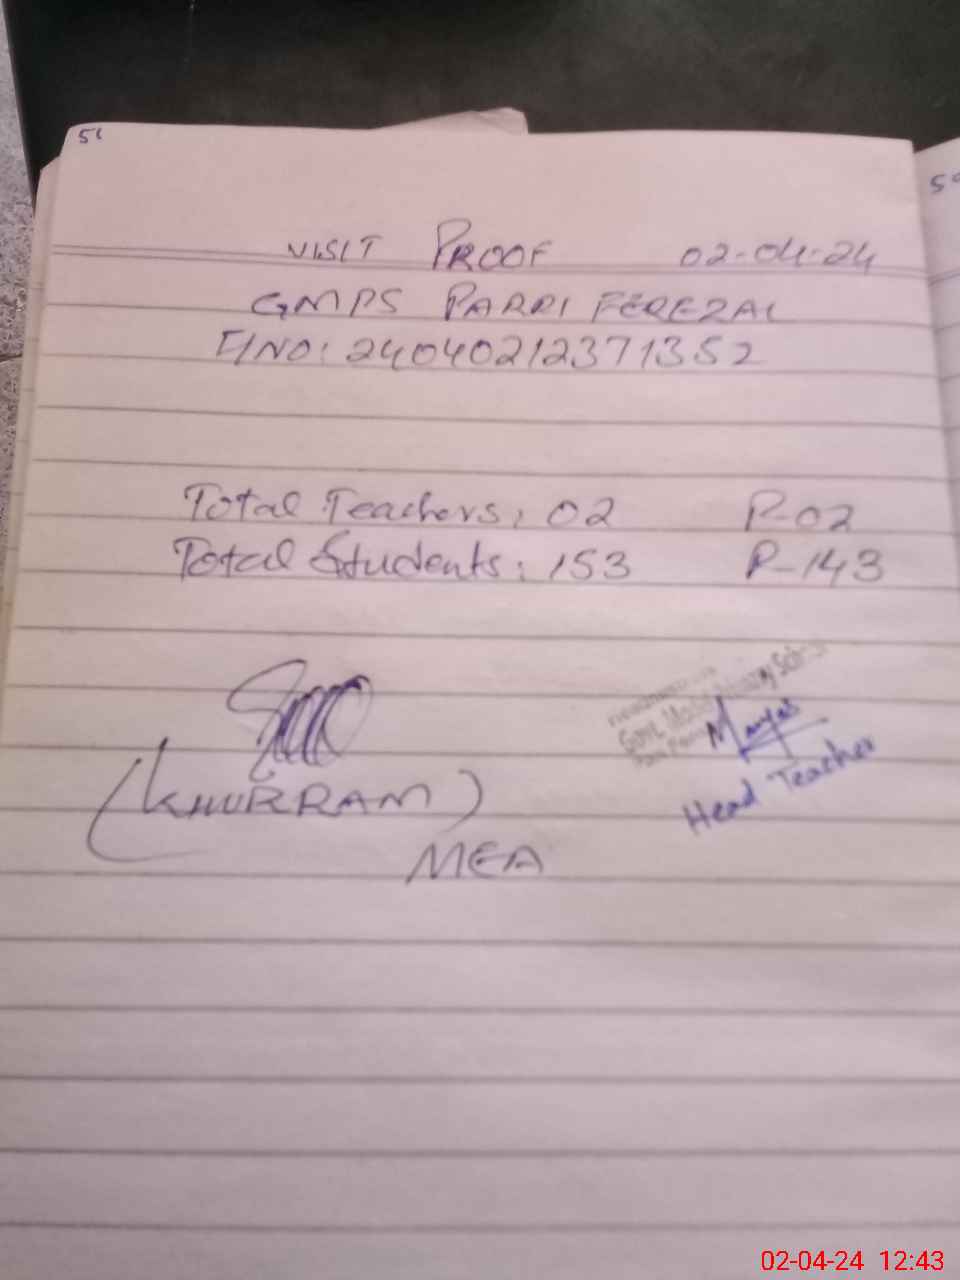 51
VISIT PROOF 02-04-24
GMPS PARRI FEREZAL
F/NO: 24040212371352
Total Teachers: 02 P-02
Total Students: 153 P-143
(KHURRAM)
MEA
Govt. Model Primary School
Head Teacher
02-04-24 12:43